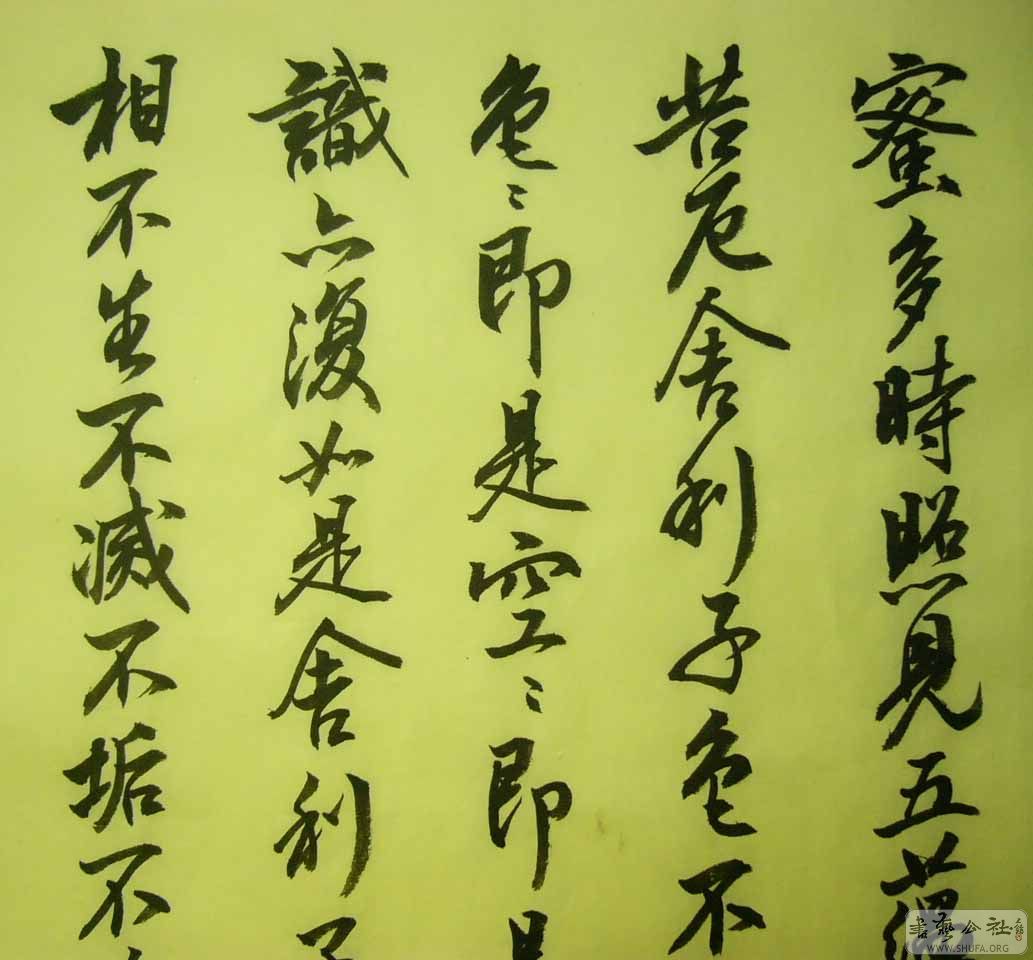 蜜多時照見五蘊
苦厄舍利子色不
色〻即是空〻〻即是
識亦復如是舍利子
相不生不滅不垢不
書藝公社
WWW.SHUFA.ORG